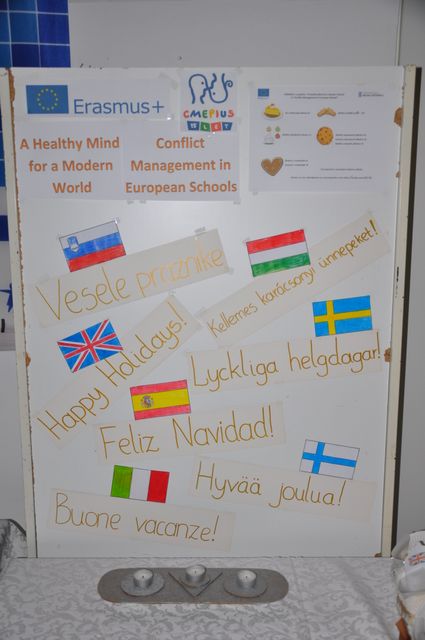 Erasmus+
CMEPIUS
A Healthy Mind
for a Modern
World
Conflict
Management in
European Schools
Vesele praznike
Kellemes karácsonyi ünnepeket!
Happy Holidays!
Lyckliga helgdagar!
Feliz Navidad!
Hyvää joulua!
Buone vacanze!